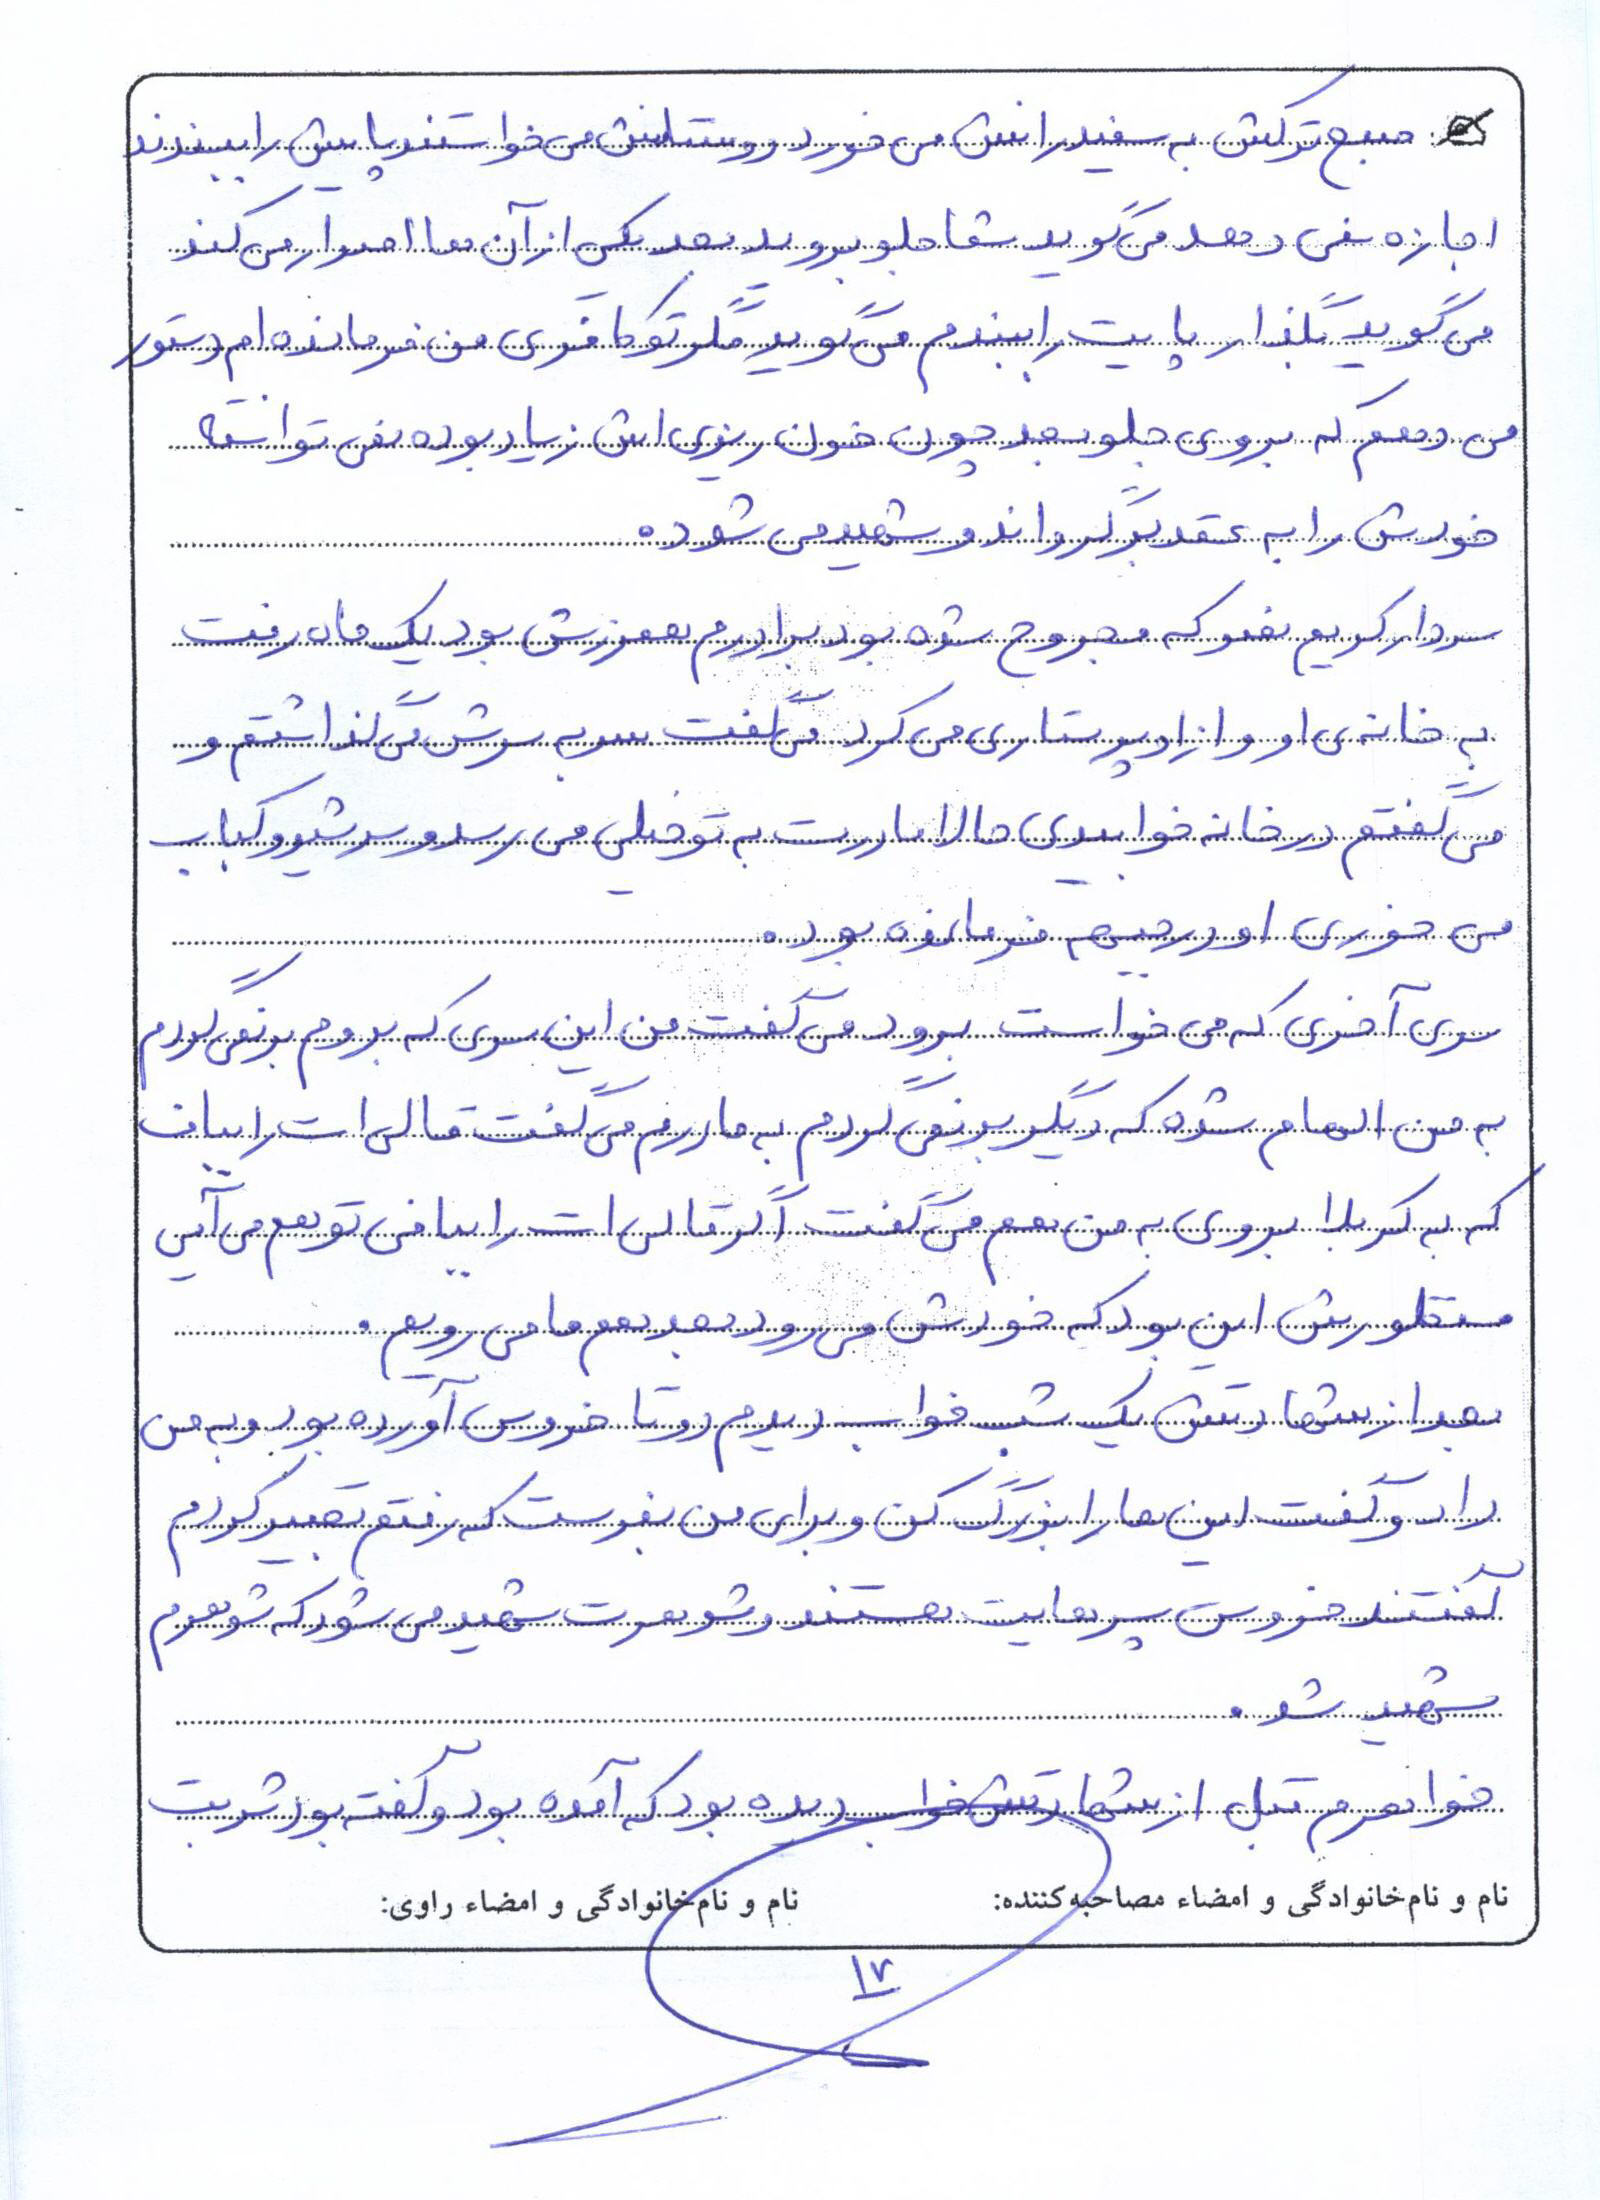 صبح ترکش به سفید رانش می خورد دوستانش می خواستند پایش را ببندند
اجازه نمی دهد می گوید شما جلو بروید بعد یکی از آن ها اصرار می کند
می گوید بگذار پایت را ببندم می گوید مگر تو کافری من فرمانده ام دستور
می دهم که بروی جلو بعد چون خون ریزی اش زیاد بوده نمی توانسته
خودش را به عقب برگرداند و شهید می شود.
سردار کریم که مجروح شده بود برادرم همرزش بود یک ماه رفت
به خانه ی او و از او پرستاری می کرد می گفت سر به سرش می گذاشتم و
می گفتم در خانه خوابیدی حالا مادرت به تو خیلی می رسد و سرشیر و کباب
می خوری او در جبهه فرمانده بود.
سری آخری که می خواست برود می گفت من این سری که بروم برنمی گردم
به من الهام شده که دیگر برنمی گردم به مادرم می گفت قالی ات را بباف
که به کربلا بروی به من هم می گفت اگر قالی ات را ببافی تو هم می آیی
منظورش این بود که خودش می رود بعد هم ما می رویم.
بعد از شهادتش یک شب خواب دیدم دو تا خروس آورده بود و به من
داد و گفت این ها را بزرگ کن و برای من بفرست که رفتم تعبیر کردم
گفتند خروس پسرهایت هستند و شوهرت شهید می شود که شوهرم
شهید شد.
خواهرم قبل از شهادتش خواب دیده بود که آمده بود و گفته بود شربت
نام و نام‌خانوادگی و امضاء مصاحبه‌کننده: نام و نام‌خانوادگی و امضاء راوی:
۱۷